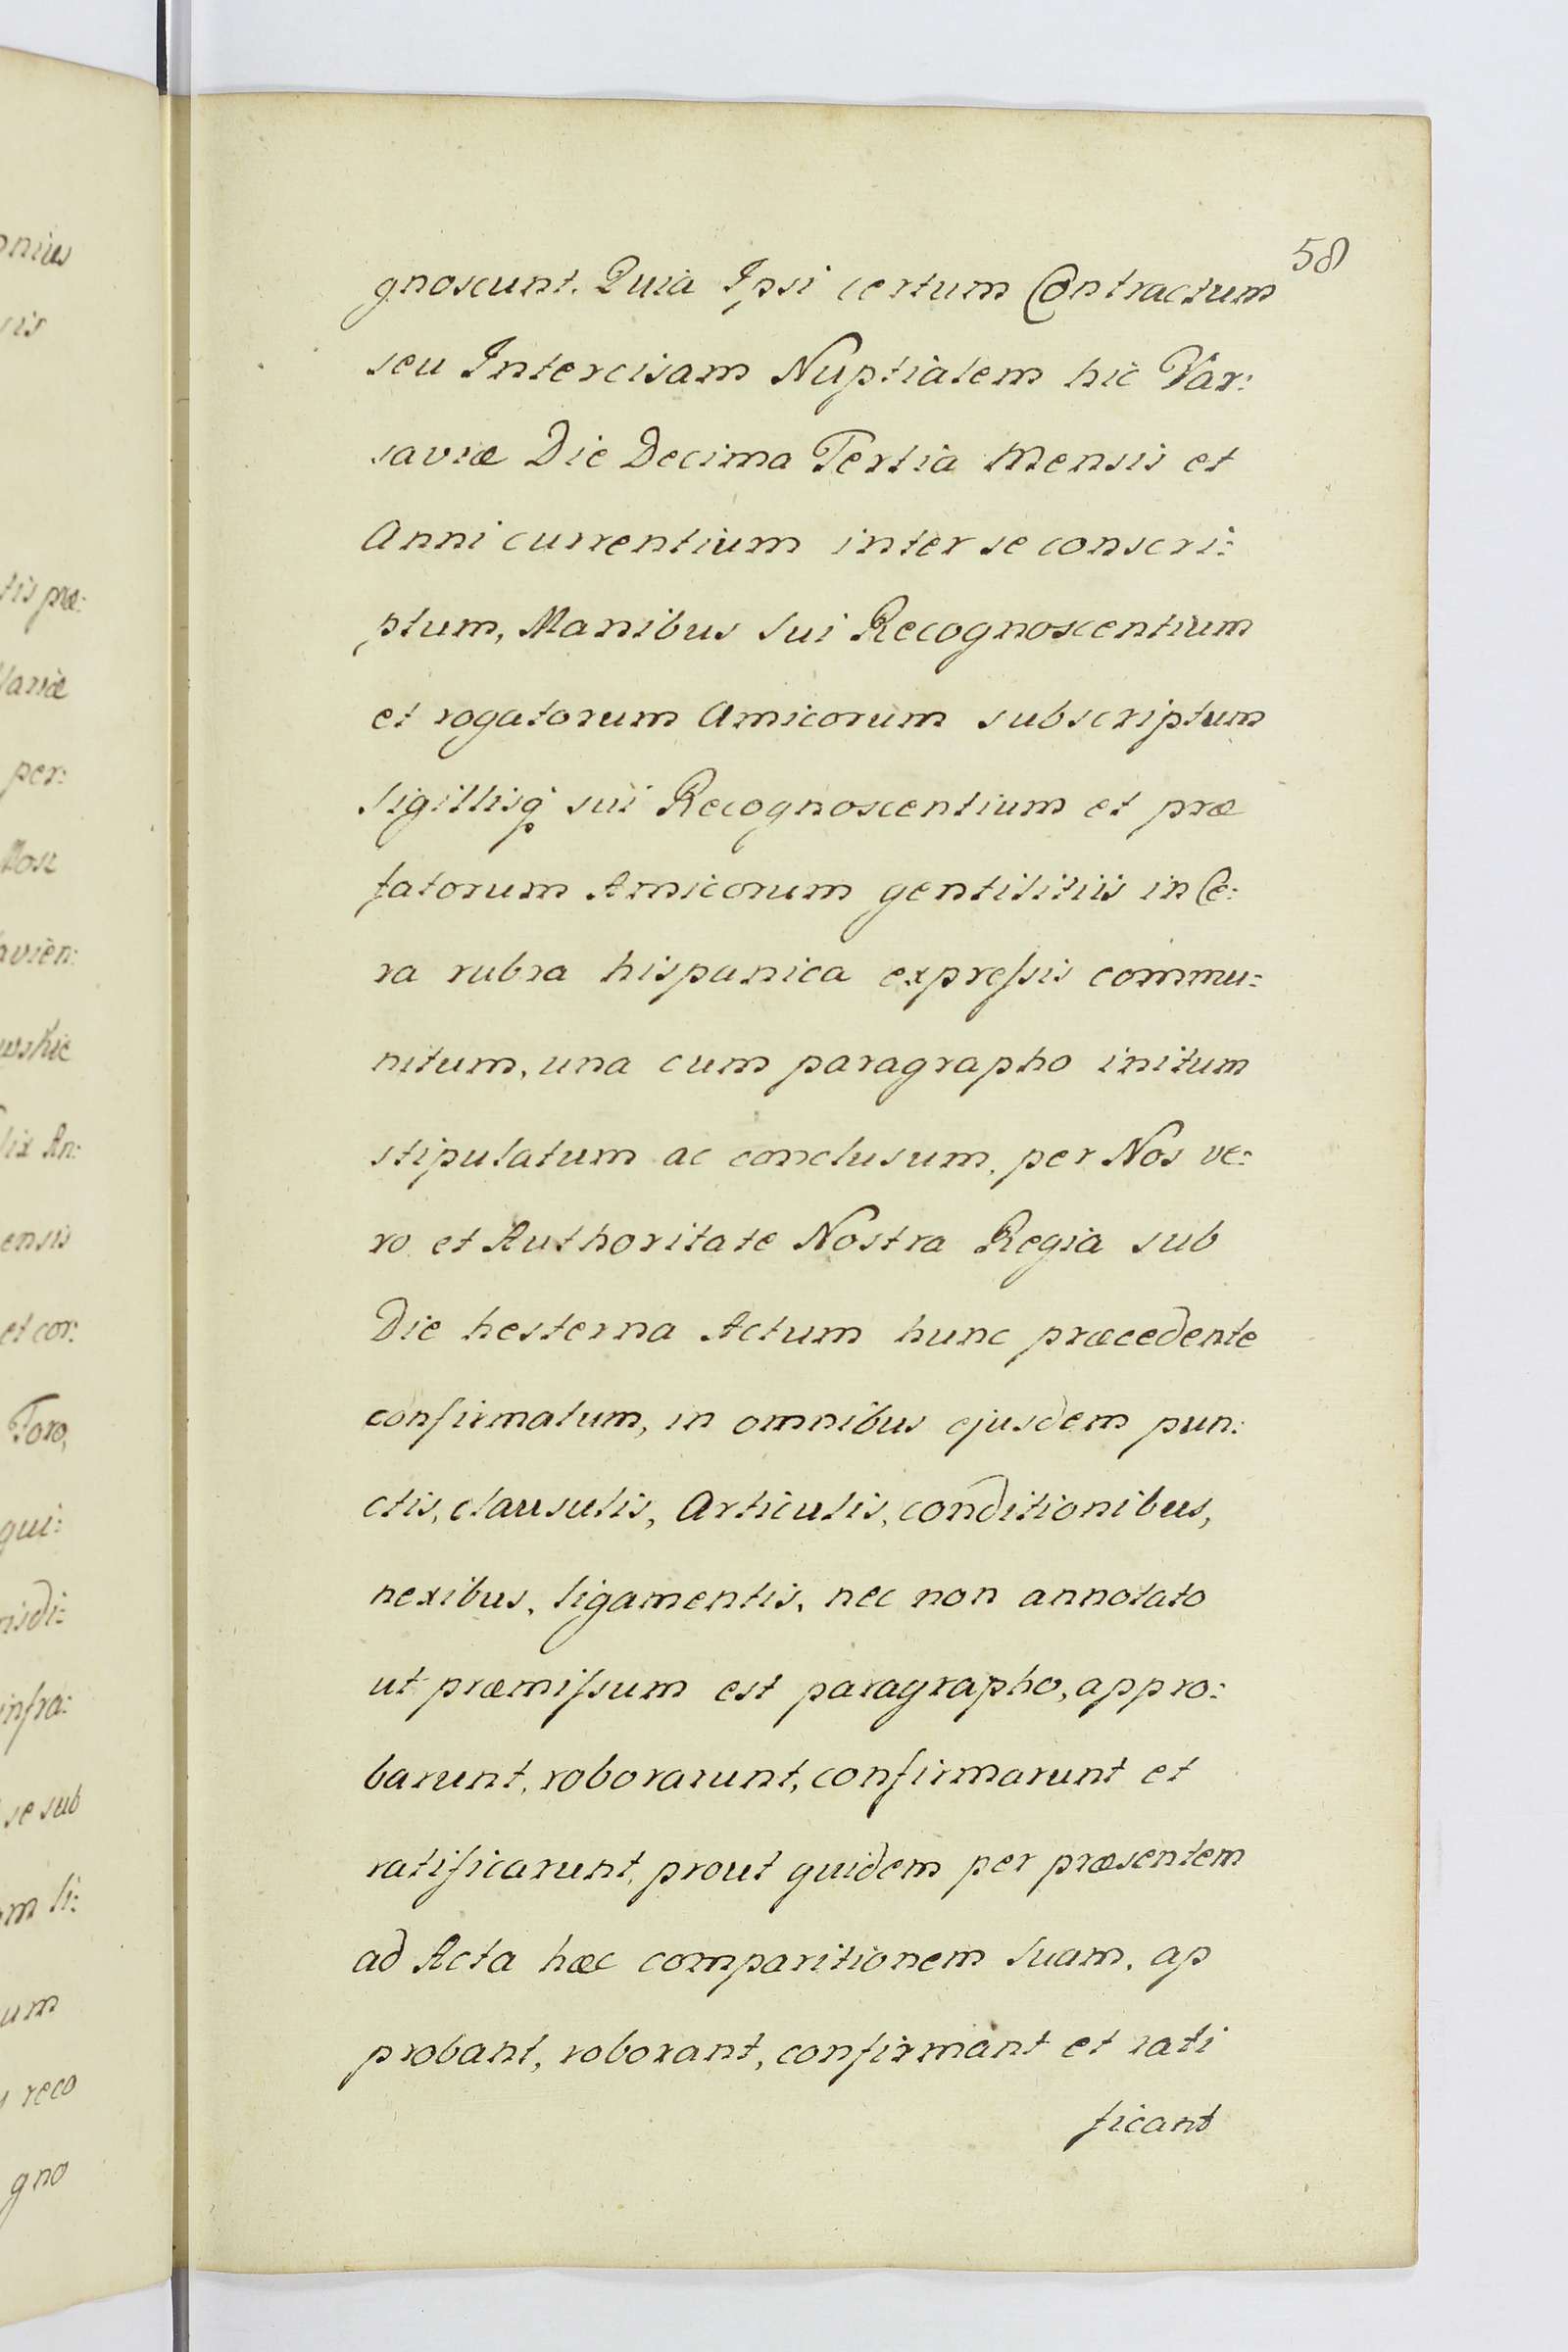 58
gnoscunt. Quia Ipsi certum Contractum
seu Intercisam Nuptialem hic Var:
saviæ Die Decima Tertia Mensis et
Anni currentium inter se conscri:
ptum, Manibus sui Recognoscentium
et rogatorum Amicorum subscriptum
sigillisq; sui Recognoscentium et præ
fatorum Amicorum gentilitiis in Ce:
ra rubra hispanica expreſsis commu:
nitum, una cum paragrapho initum
stipulatum ac conclusum, per Nos ve:
ro et Authoritate Nostra Regia sub
Die hesterna Actum hunc præcedente
confirmatum, in omnibus ejusdem pun:
ctis, clausulis, Articulis, conditionibus,
nexibus, ligamentis, nec non annotato
ut præmiſsum est paragrapho, appro:
barunt, roborarunt, confirmarunt et
ratificarunt, prout quidem per præsentem
ad Acta hæc comparitionem suam, ap
probant, roborant, confirmant et rati
ficant
onius
sis
tis præ:
per:
avien:
wskie
lix An:
ensis
et cor:
Foro,
qui:
risdi:
infra:
se sub
um
reco
gno